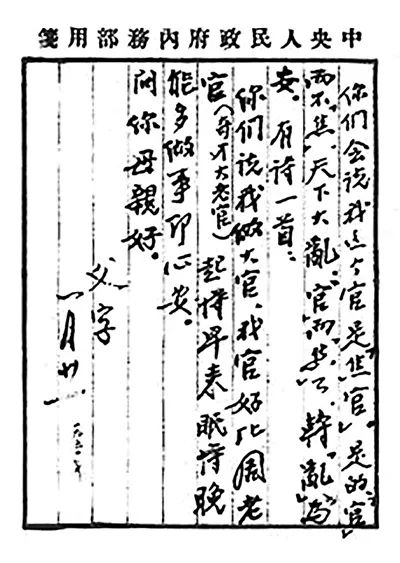 中央人民政府內務部用箋
你們会说我这个官是"焦官"。是的"官"
而不"焦"，天下大亂。"官"而"焦"了，轉"亂"為
安。有诗一首：
你们说我做大官，我官好比周老
官（奇才大老官）起得早来眠得晚
能多做事即心安。
问你母親好。
父字
一月廿一.
一九五〇年